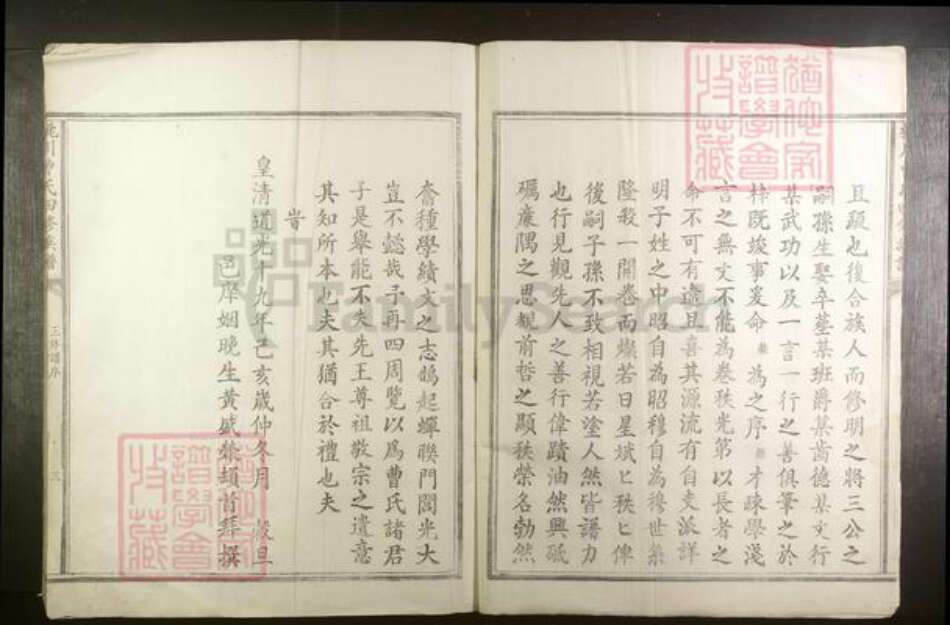 且疑也復合族人而修明之將三公之
嗣孫生娶卒塟某班爵某齒德某文行
某武功以及一言一行之善俱筆之於
梓既竣事爰命 為之序 才疎學淺
言之無文不能為卷秩光第以長者之
命不可有違且喜其源流有自支派詳
明子姓之中昭自為昭穆自為穆世系
隆殺一開卷而燦若日星斌匕秩匕俾
後嗣子孫不致相視若塗人然皆譜力
也行見觀先人之善行偉蹟油然興砥
礪廉隅之思覩前哲之顯秩榮名勃然
奮種學績文之志鵲起蟬聯門閭光大
豈不懿哉予再四周覽以爲曹氏諸君
子是舉能不失先王尊祖敬宗之遺意
其知所本也夫其猶合於禮也夫
旹
皇清道光十九年己亥歲仲冬月 穀旦
邑庠姻晚生黃盛 頓首拜撰
曹氏四修族譜
三修譜序
三
譜學會
收藏
FamilySearch